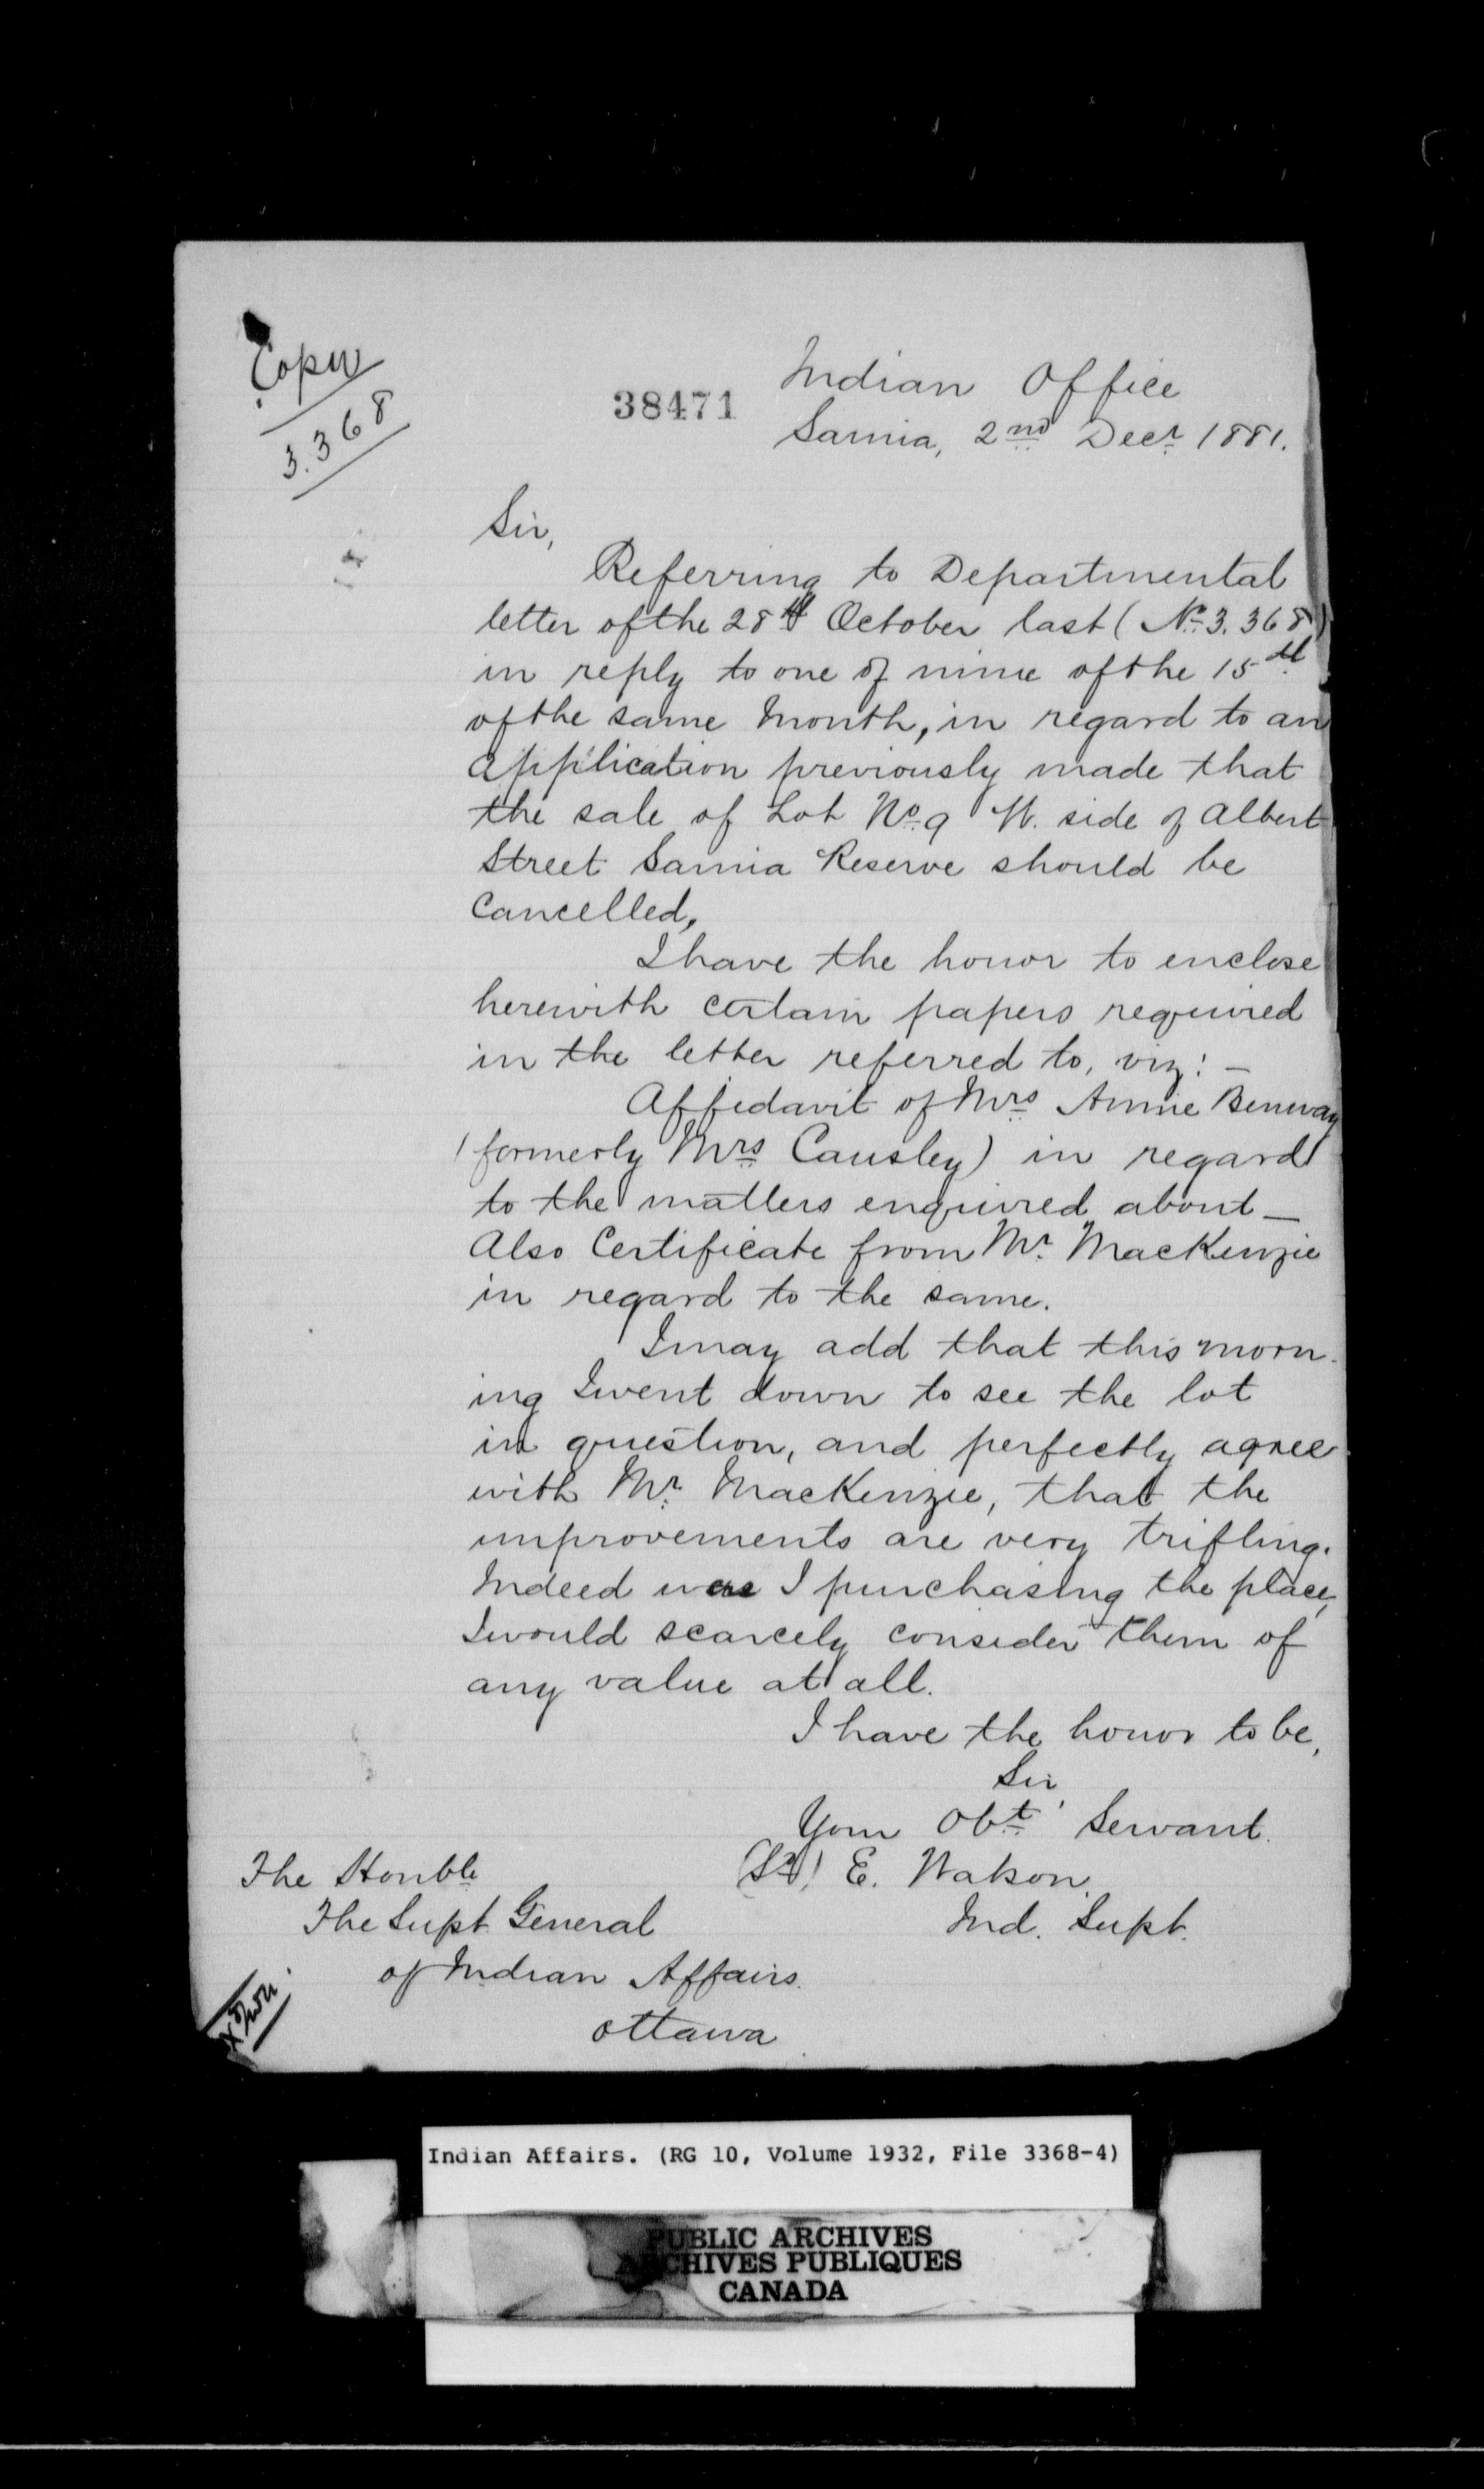 Copy
3.368
38471
Indian Office
Sarnia, 2nd Decr 1881.
Sir,
Referring to Departmental
letter of the 28th October last (No 3.368)
in reply to one of mine of the 15th
of the same Month, in regard to an
application previously made that
the sale of Lot No 9 W. side of Albert
Street Sarnia Reserve should be
Cancelled,
I have the honor to enclose
herewith certain papers required
in the letter referred to, viz: —
Affidavit of Mrs Annie Benway
(formerly Mrs Causley) in regard
to the matters enquired about —
Also Certificate from Mr MacKenzie
in regard to the same.
I may add that this morn-
ing I went down to see the lot
in question, and perfectly agree
with Mr MacKenzie, that the
improvements are very trifling.
Indeed was I purchasing the place,
I would scarcely consider them of
any value at all.
I have the honor to be,
Sir,
Your Obt Servant.
(Sd) E. Watson
Ind. Supt.
The Honble
The Supt General
of Indian Affairs.
Ottawa
Indian Affairs. (RG 10, Volume 1932, File 3368-4)
PUBLIC ARCHIVES
ARCHIVES PUBLIQUES
CANADA